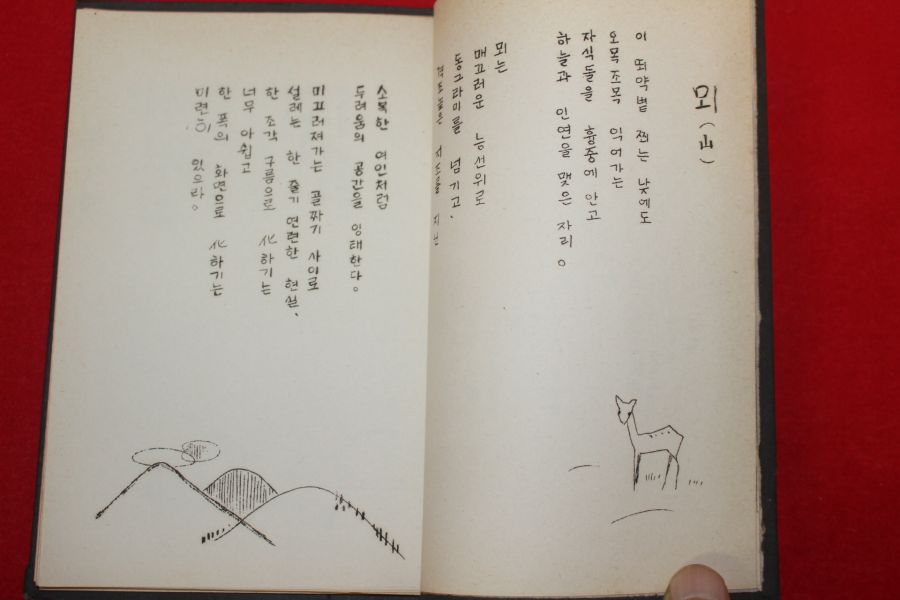 뫼(山)
이 뙤약볕 쬐는 낮에도
오목조목 익어가는
자식들을 흉중에 안고
하늘과 인연을 맺은 자리。
뫼는
매끄러운 능선위로
동그라미를 넘기고、
소복한 여인처럼
두려움의 공간을 잉태한다。
미끄러져가는 골짜기 사이로
설레는 한 줄기 연련한 현실、
한 조각 구름으로 化하기는
너무 아쉽고
한 폭의 화면으로 化하기는
미련히 있으라。